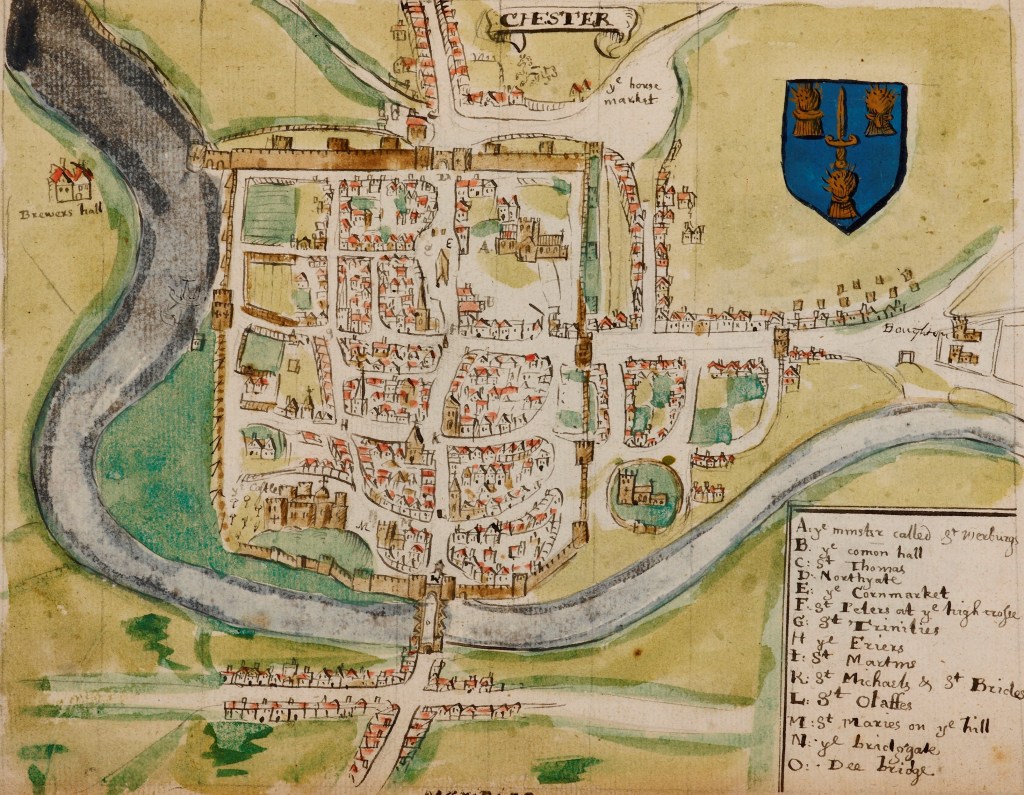 CHESTER
ye horse
market
Brewers hall
Boughton
E
A
D
K
H
Castle
M
N
A: ye minstr called St werburgs
B. ye comon hall
C: St Thomas
D: Northgate
E: ye Cornmarket
F: St Peters at ye high crosse
G: St Trinities
H ye Friers
I: St Martins
K: St Michaels & St Brides
L: St Olaffes
M: St Maries on ye hill
N: ye bridggate
O: Dee bridge